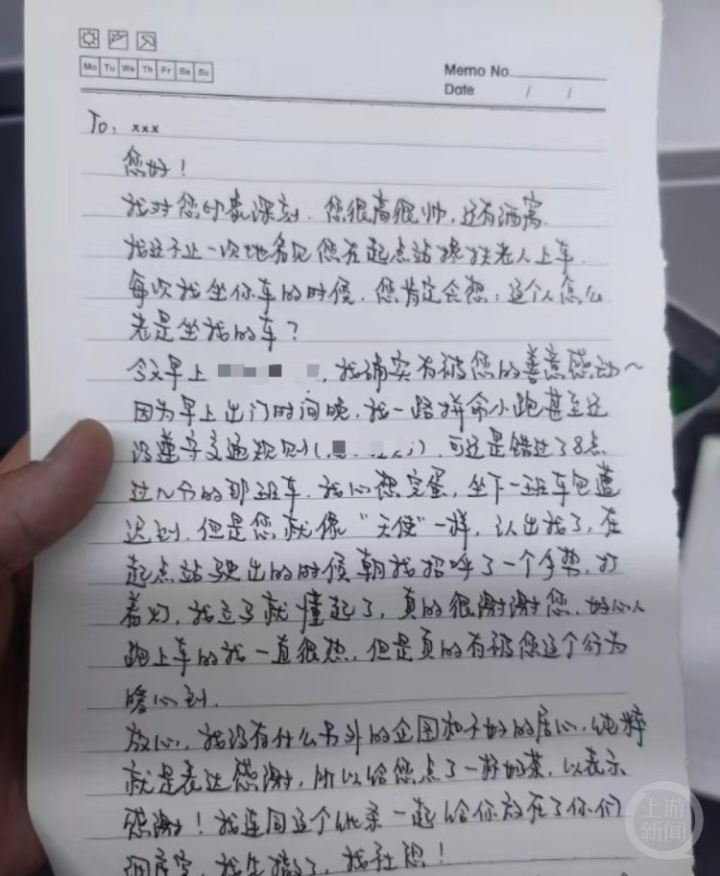 Mo Tu We Th Fr Sa Su
Memo No.
Date / /
To: xxx
您好!
我对您印象深刻. 您很高很帅, 还有酒窝.
我还不止一次地看见您在起点站搀扶老人上车.
每次我坐你车的时候, 您肯定会想: 这个人怎么
老是坐我的车?
今天早上 , 我确实有被您的善意感动~
因为早上出门时间晚, 我一路拼命小跑甚至还
没遵守交通规则( ), 可还是错过了8点
过几分的那班车. 我心想完蛋, 坐下一班车包遭
迟到. 但是您就像“天使”一样, 认出我了, 在
起点站驶出的时候朝我招呼了一个手势, 打
着灯, 我立马就懂起了, 真的很谢谢您, 好心人
跑上车的我一直很热, 但是真的有被您这个行为
暖心到.
放心, 我没有什么另外的企图和不好的居心, 纯粹
就是表达感谢, 所以给您点了一杯奶茶, 以表示
感谢! 我连同这个纸条一起给你放在了你们
, 我先撤了, 我社恐!
上游新闻